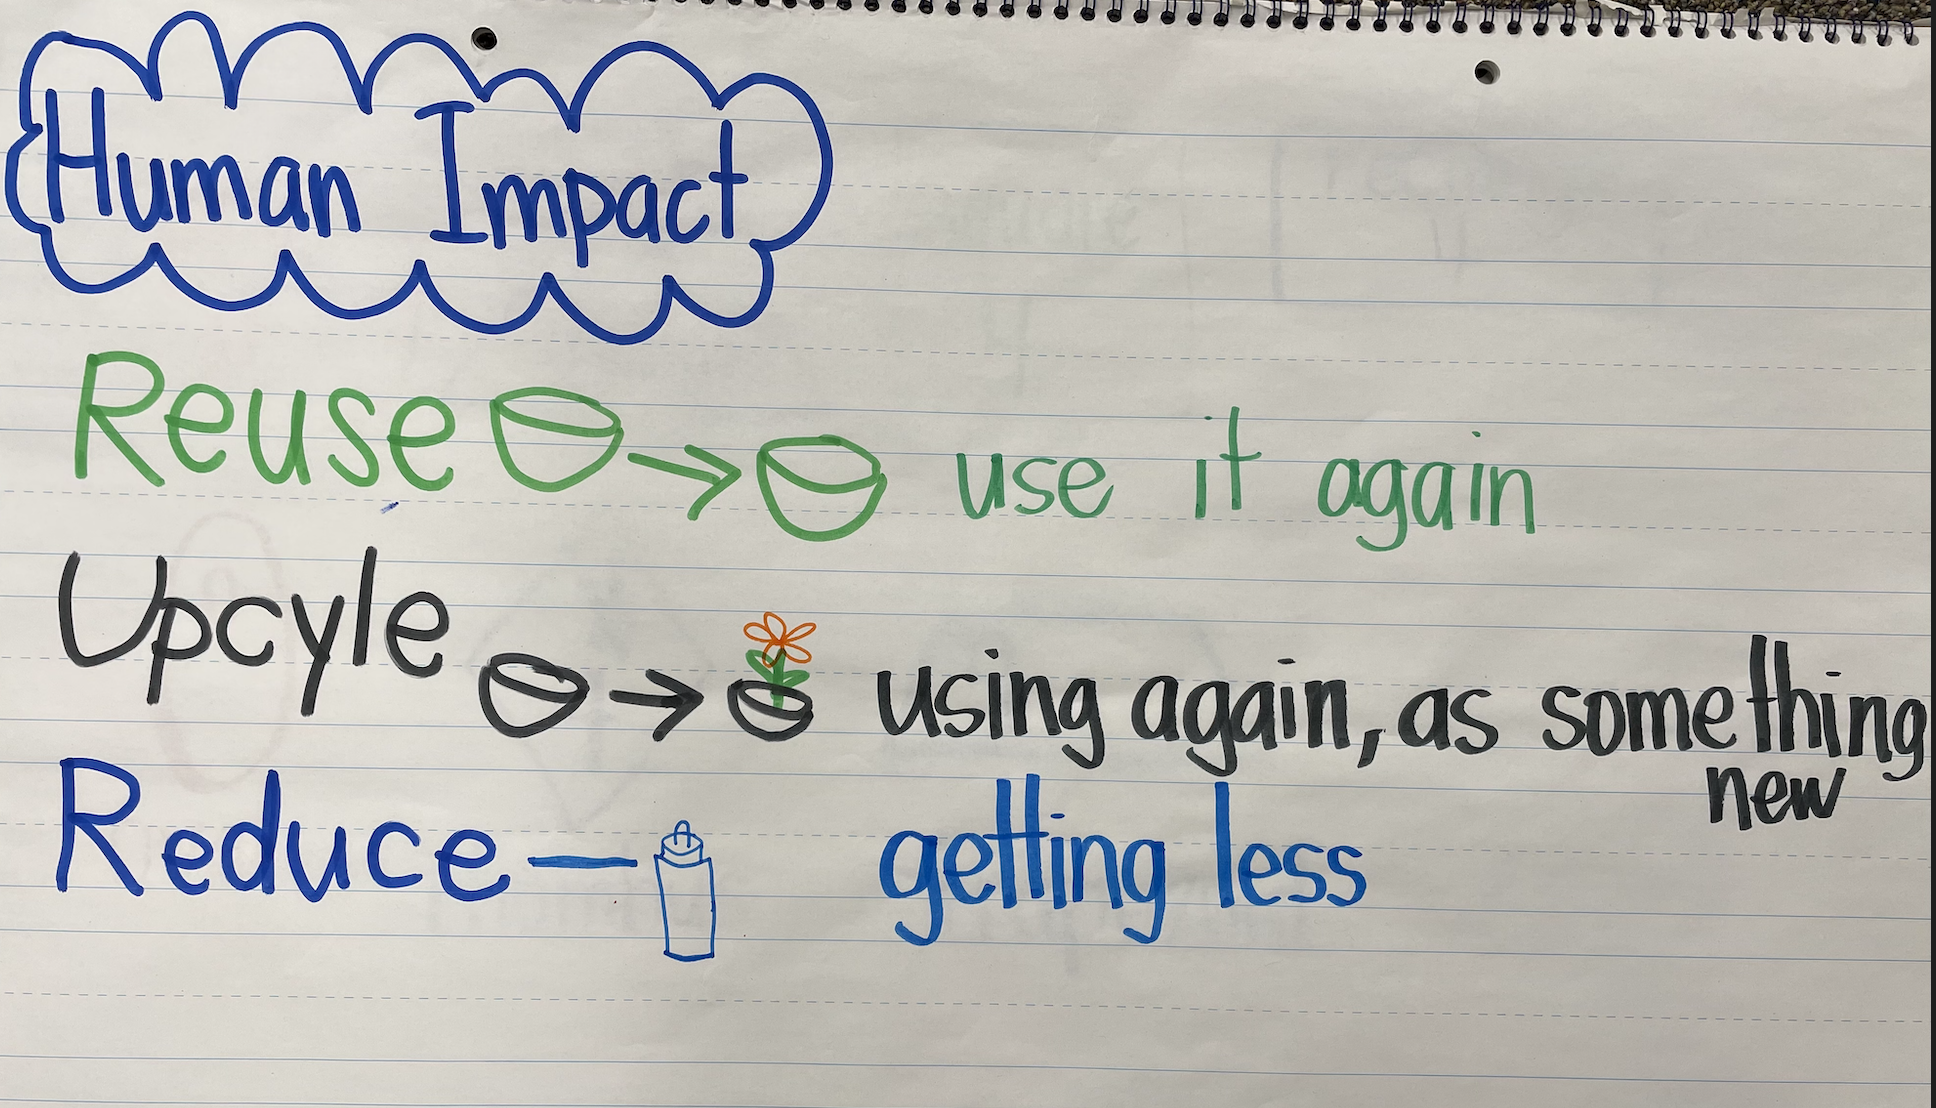 Human Impact
Reuse use it again
Upcyle using again, as something
new
Reduce getting less